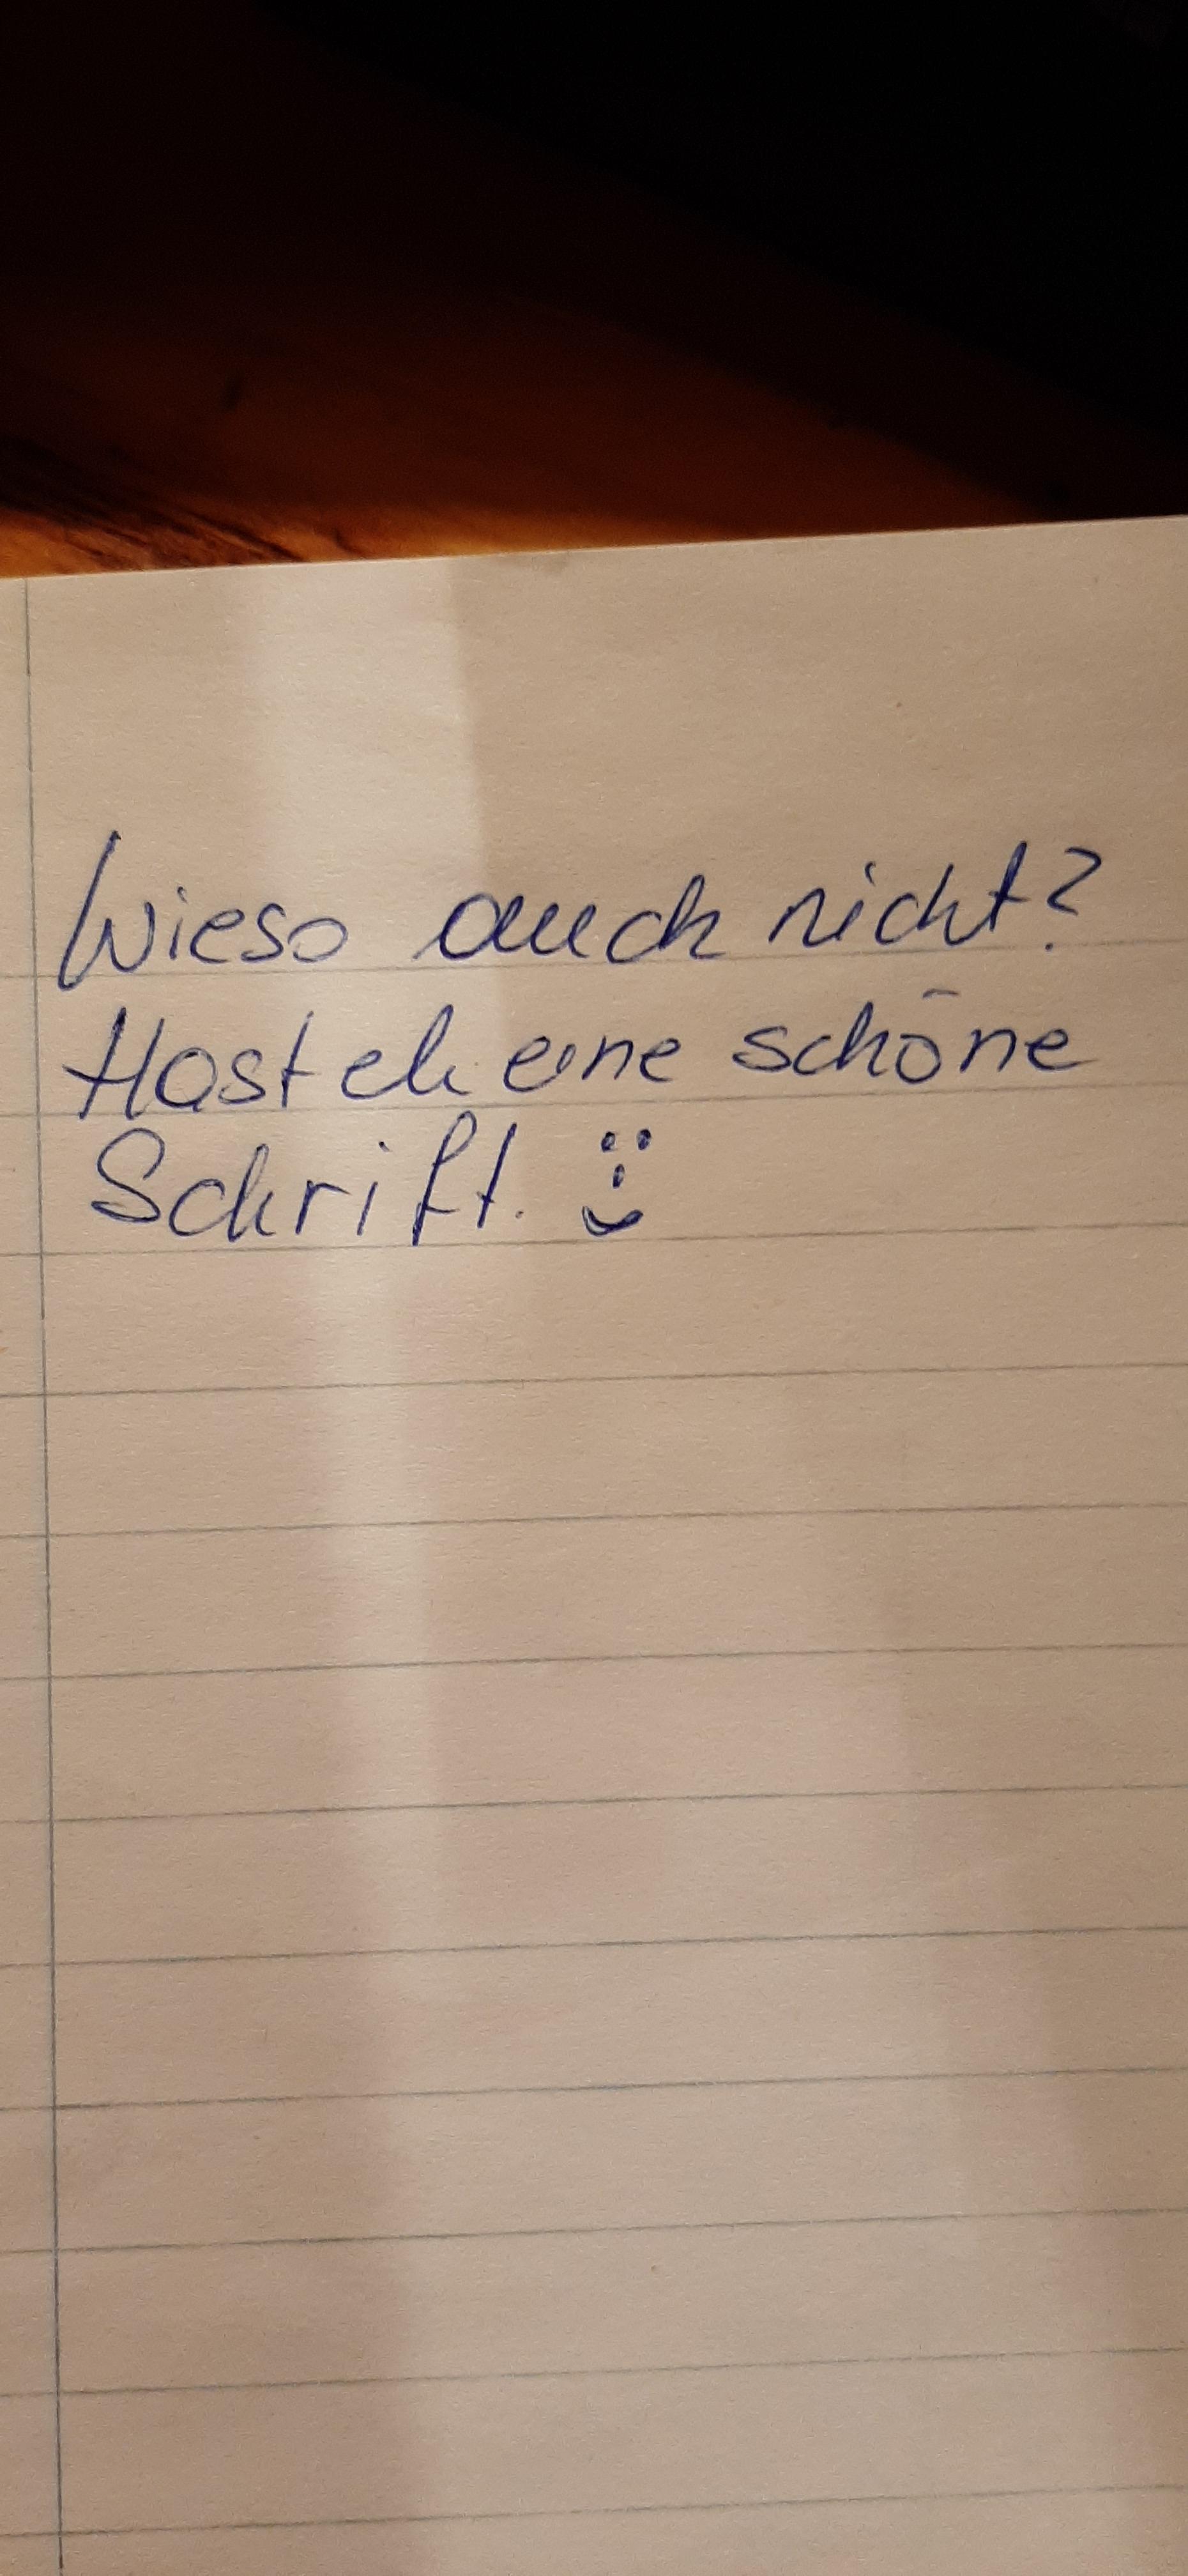 Wieso auch nicht?
Hast eh eine schöne
Schrift. :)